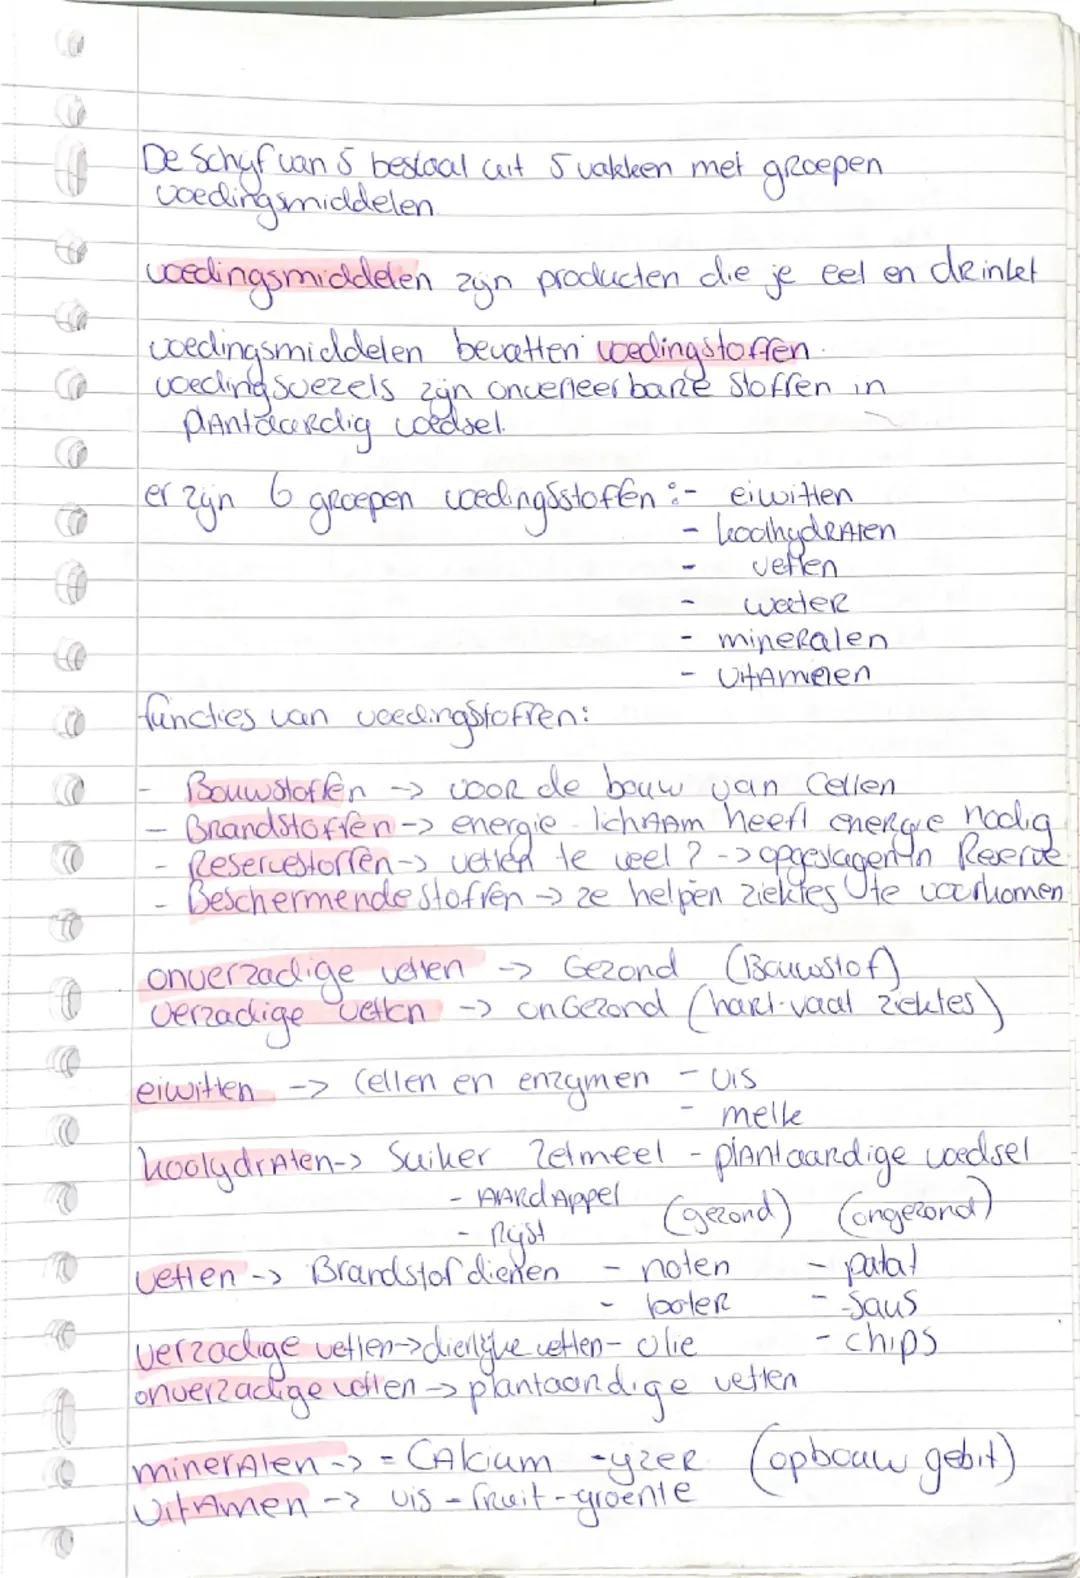 De Schyf van 5 bestaat uit 5 vakken met groepen
voedingsmiddelen
voedingsmiddelen zyn producten die je eet en drinket
voedingsmiddelen bevatten voedingstoffen.
voedingsvezels zijn onverteerbare stoffen in
plantaardig voedsel.
er zyn 6 groepen voedingsstoffen :- eiwitten
- koolhydraten
- vetten
- water
- mineralen
- vitamienen
functies van voedingstoffen:
- Bouwstoffen -> voor de bouw van Cellen
- Brandstoffen -> energie - lichaam heeft energie nodig
- Reservestoffen -> vetten te veel ? -> opgeslagen in Reserve
- Beschermende stoffen -> ze helpen ziektes te voorkomen
onverzadige vetten -> Gezond (Bouwstof)
verzadige vetten -> onGezond (hart-vaat ziektes)
eiwitten -> Cellen en enzymen - vis
- melk
koolydraten -> Suiker Zetmeel - plantaardige voedsel
- AARdAppel (gezond) (ongezond)
- Rijst
vetten -> Brandstof dienen - noten - patat
- boter - saus
verzadige vetten -> dierlijke vetten - olie - chips
onverzadige vetten -> plantaardige vetten
mineralen -> - CAlcium - yzer (opbouw gebit)
vitamen -> vis - fruit - groente